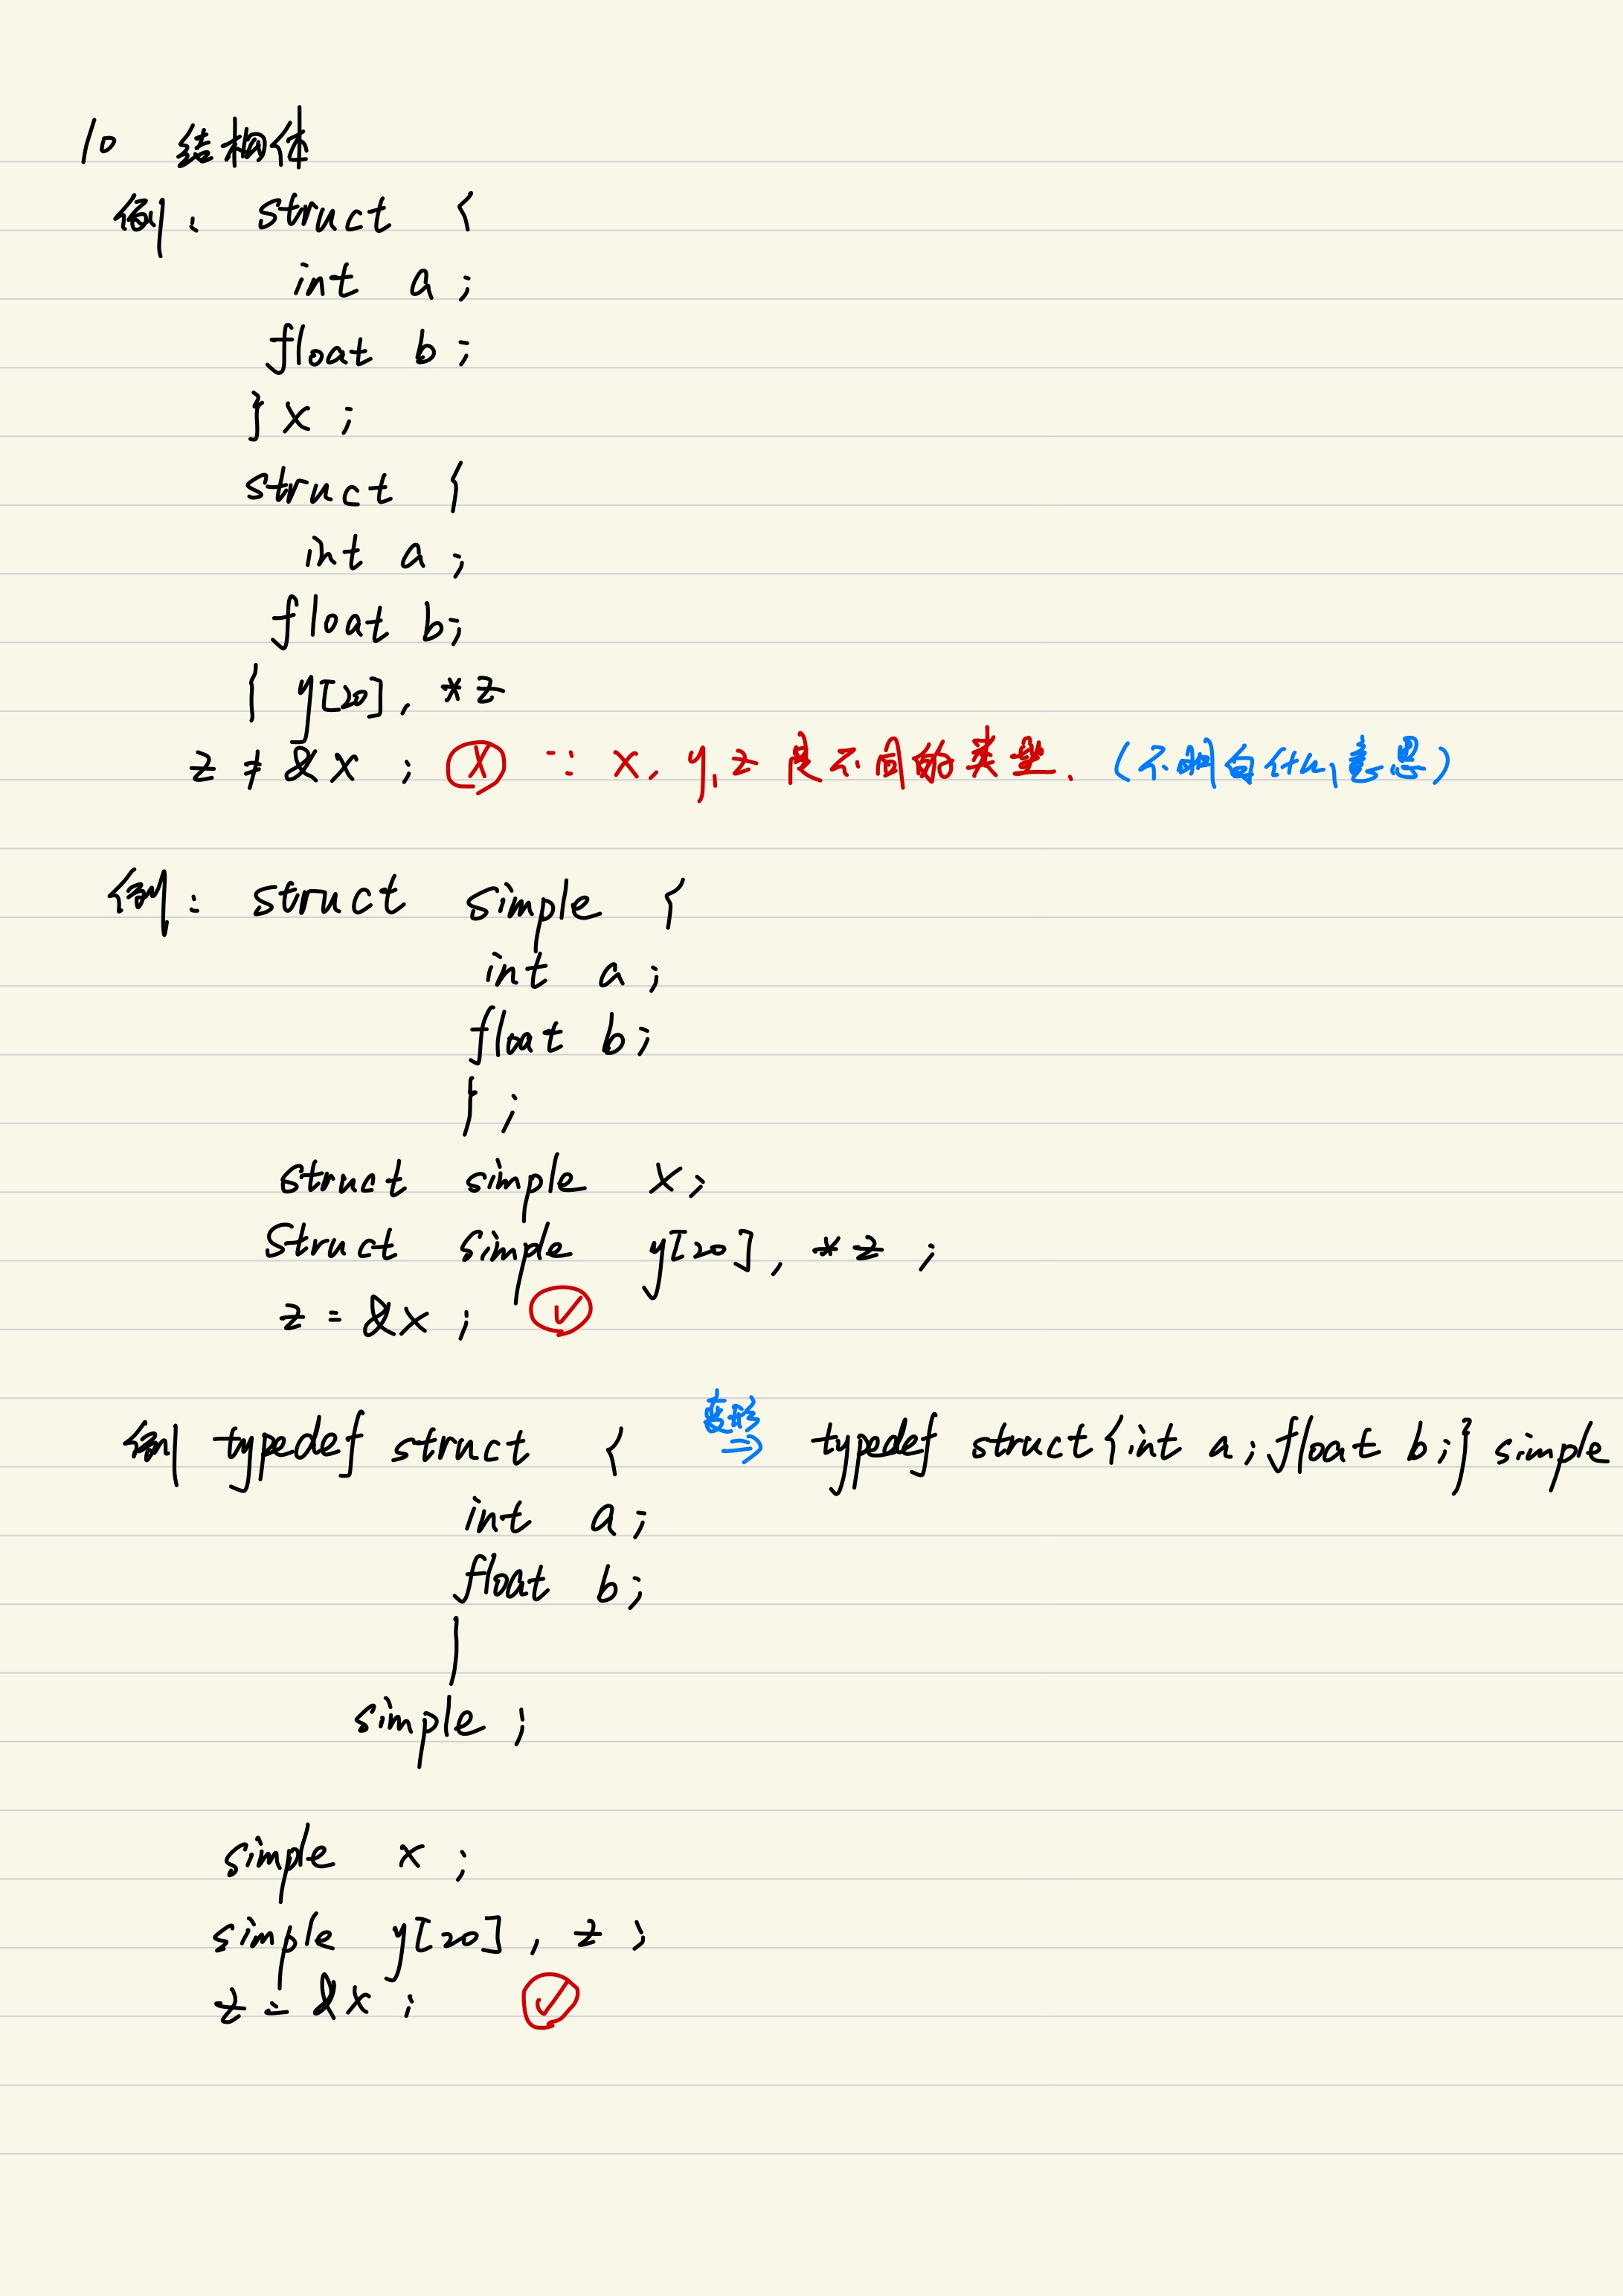 10 结构体
例: struct {
int a ;
float b ;
} x ;
struct {
int a ;
float b;
} y[20], *z
z ≠ &x ; Ⓧ ∵ x, y, z 是不同的类型. (不明白什么意思)
例: struct simple {
int a ;
float b;
} ;
struct simple x;
Struct simple y[20], *z ;
z = &x ; ✓
例 typedef struct { 变形 ⇒ typedef struct{int a; float b;} simple
int a ;
float b;
}
simple ;
simple x ;
simple y[20], z ;
z = &x ; ✓